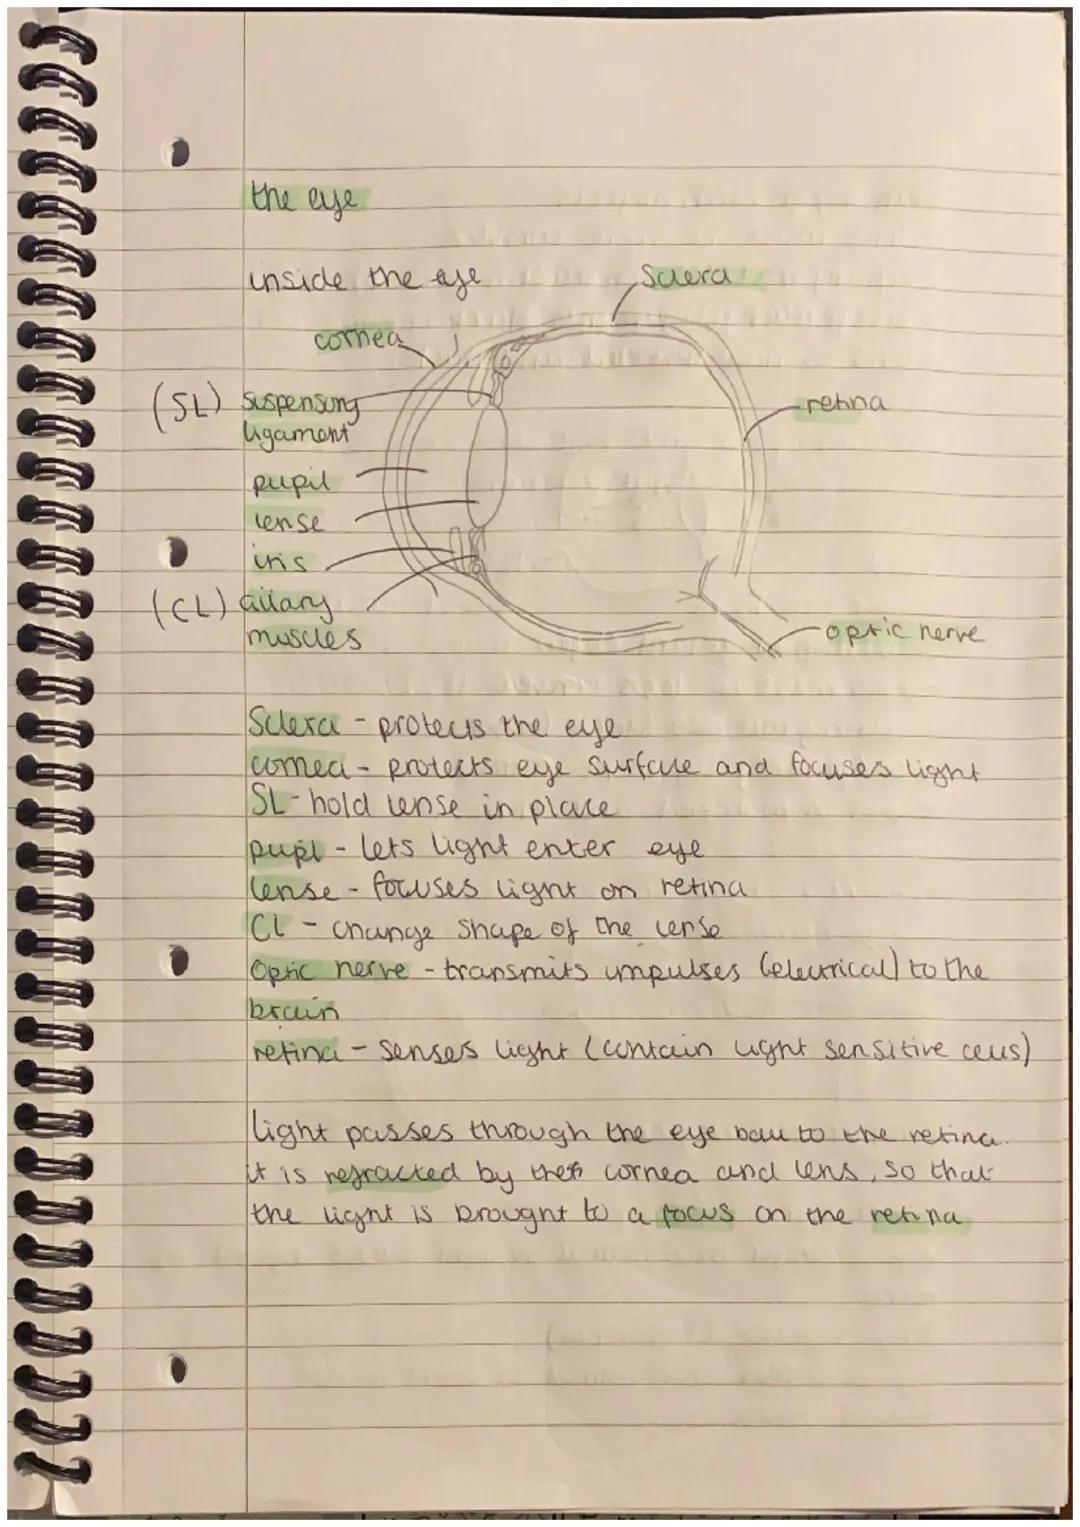 the eye
inside the eye
Sclera
cornea
(SL) suspensory
ligament
retina
pupil
lense
iris
(CL) cillary
muscles
optic nerve
Sclera - protects the eye
cornea - protects eye surface and focuses light
SL - hold lense in place
pupil - lets light enter eye
lense - focuses light on retina
CL - change shape of the lense
Optic nerve - transmits impulses (electrical) to the
brain
retina - senses light (contain light sensitive cells)
light passes through the eye ball to the retina.
it is refracted by the cornea and lens, so that
the light is brought to a focus on the retina